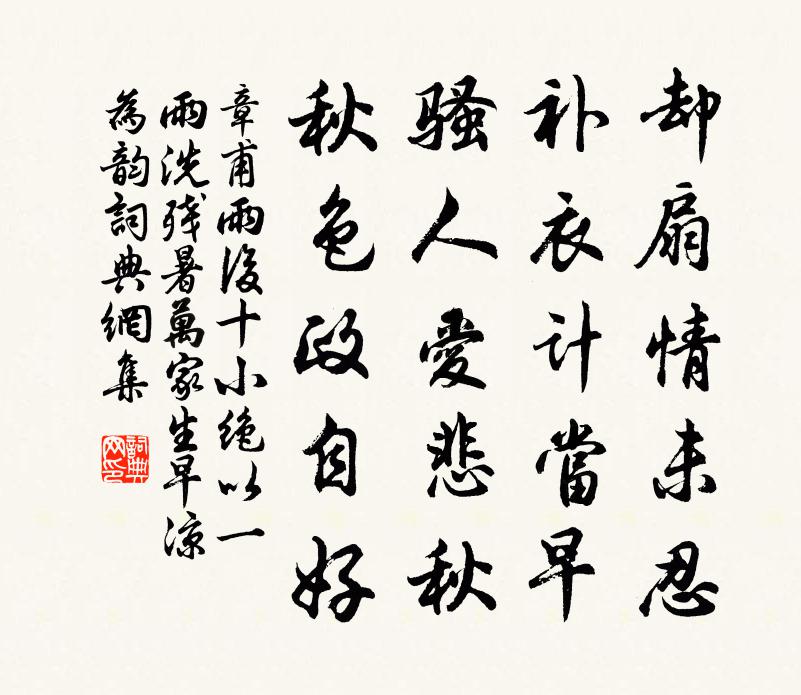 却扇情未忍
补衣计當早
骚人愛悲秋
秋色政自好
章甫雨後十小绝以一
雨洗残暑萬家生早凉
為韵詞典網集
詞典网印